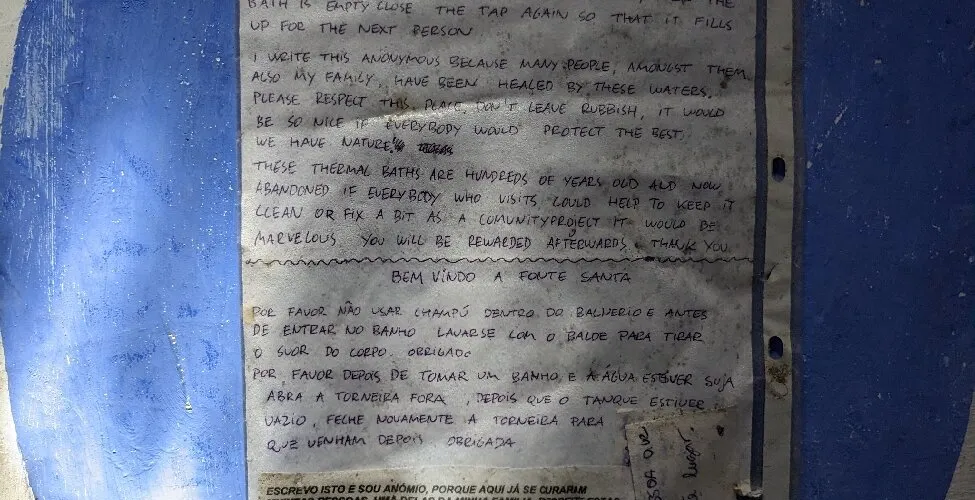 BATH IS EMPTY CLOSE THE TAP AGAIN SO THAT IT FILLS
UP FOR THE NEXT PERSON
I WRITE THIS ANONYMOUS BECAUSE MANY PEOPLE, AMONGST THEM
ALSO MY FAMILY, HAVE BEEN HEALED BY THESE WATERS.
PLEASE RESPECT THIS PLACE, DON'T LEAVE RUBBISH, IT WOULD
BE SO NICE IF EVERYBODY WOULD PROTECT THE BEST
WE HAVE NATURE'S
THESE THERMAL BATHS ARE HUNDREDS OF YEARS OLD AND NOW
ABANDONED IF EVERYBODY WHO VISITS COULD HELP TO KEEP IT
CLEAN OR FIX A BIT AS A COMUNITYPROJECT IT WOULD BE
MARVELOUS YOU WILL BE REWARDED AFTERWARDS. THANK YOU
BEM VINDO A FONTE SANTA
POR FAVOR NÃO USAR CHAMPÚ DENTRO DO BALNERIO E ANTES
DE ENTRAR NO BANHO LAVARSE COM O BALDE PARA TIRAR
O SUOR DO CORPO. OBRIGADO
POR FAVOR DEPOIS DE TOMAR UM BANHO E A ÁGUA ESTIVER SUJA
ABRA A TORNEIRA FORA, DEPOIS QUE O TANQUE ESTIVER
VAZIO, FECHE NOVAMENTE A TORNEIRA PARA
QUE VENHAM DEPOIS OBRIGADA
ESCREVO ISTO E SOU ANÓMIO, PORQUE AQUI JÁ SE CURARIM
lugar.